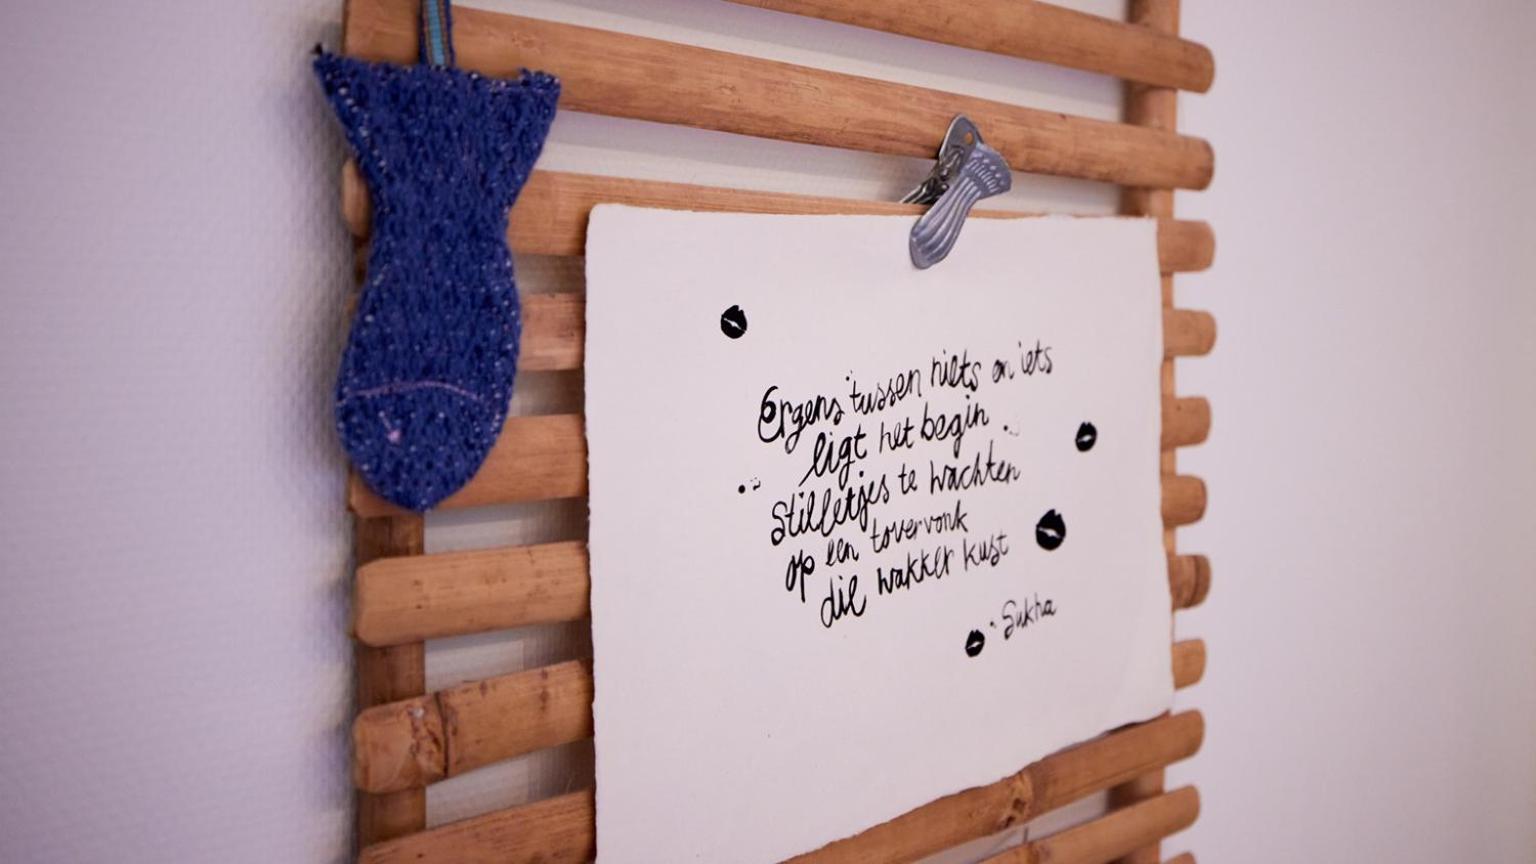 Ergens tussen niets en iets
ligt het begin
stilletjes te wachten
op een tovervonk
die wakker kust
Sukha